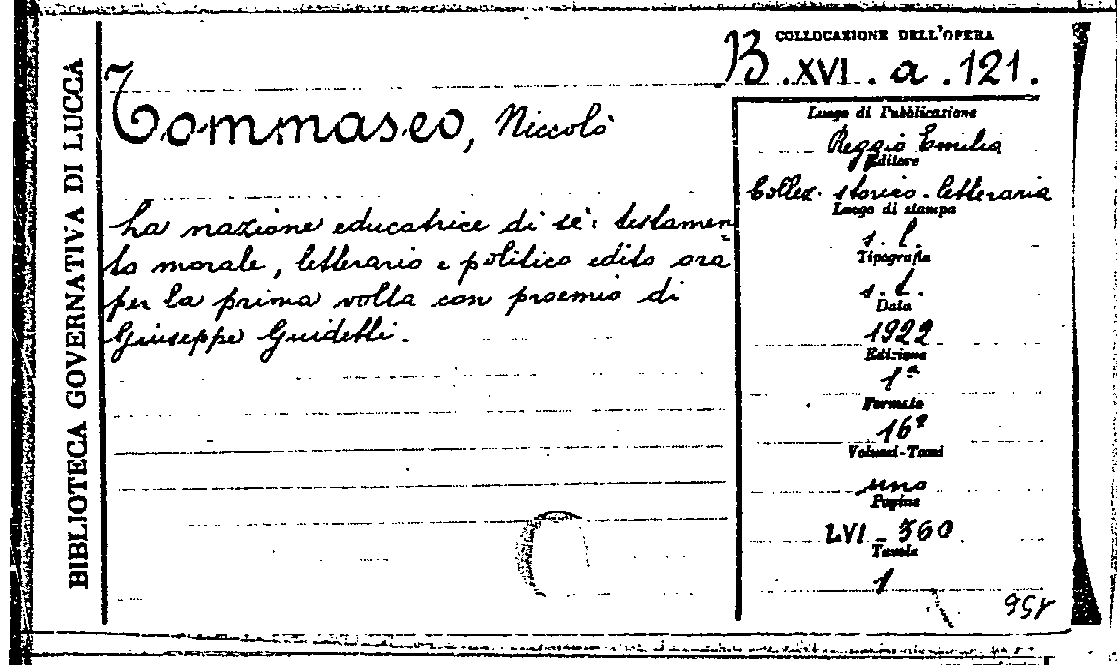 BIBLIOTECA GOVERNATIVA DI LUCCA
COLLOCAZIONE DELL'OPERA
B.XVI.a.121.
Tommaseo, Niccolò
La nazione educatrice di sè: testamen
to morale, letterario e politico edito ora
per la prima volta con proemio di
Giuseppe Guidetti.
Luogo di Pubblicazione
Reggio Emilia
Editore
Collez. storico-letteraria
Luogo di stampa
s. l.
Tipografia
s. t.
Data
1922
Edizione
1ª
Formato
16º
Volumi-Tomi
uno
Pagine
LVI-360
Tavole
1